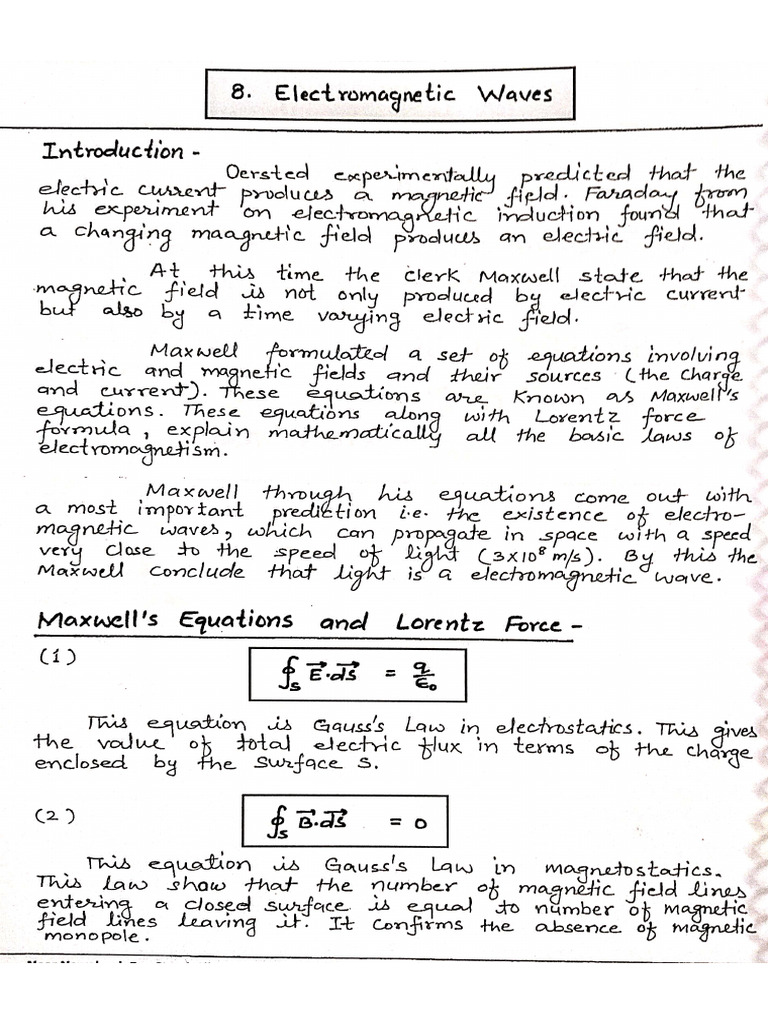 8. Electromagnetic Waves
Introduction -
Oersted experimentally predicted that the
electric current produces a magnetic field. Faraday from
his experiment on electromagnetic induction found that
a changing maagnetic field produces an electric field.
At this time the clerk Maxwell state that the
magnetic field is not only produced by electric current
but also by a time varying electric field.
Maxwell formulated a set of equations involving
electric and magnetic fields and their sources (the charge
and current). These equations are known as Maxwell's
equations. These equations along with Lorentz force
formula, explain mathematically all the basic laws of
electromagnetism.
Maxwell through his equations come out with
a most important prediction i.e. the existence of electro-
magnetic waves, which can propagate in space with a speed
very close to the speed of light (3×10⁸ m/s). By this the
Maxwell conclude that light is a electromagnetic wave.
Maxwell's Equations and Lorentz Force -
(1)
∮ₛ E⃗·dS⃗ = q/ε₀
This equation is Gauss's Law in electrostatics. This gives
the value of total electric flux in terms of the charge
enclosed by the surface S.
(2)
∮ₛ B⃗·dS⃗ = 0
This equation is Gauss's Law in magnetostatics.
This law show that the number of magnetic field lines
entering a closed surface is equal to number of magnetic
field lines leaving it. It confirms the absence of magnetic
monopole.